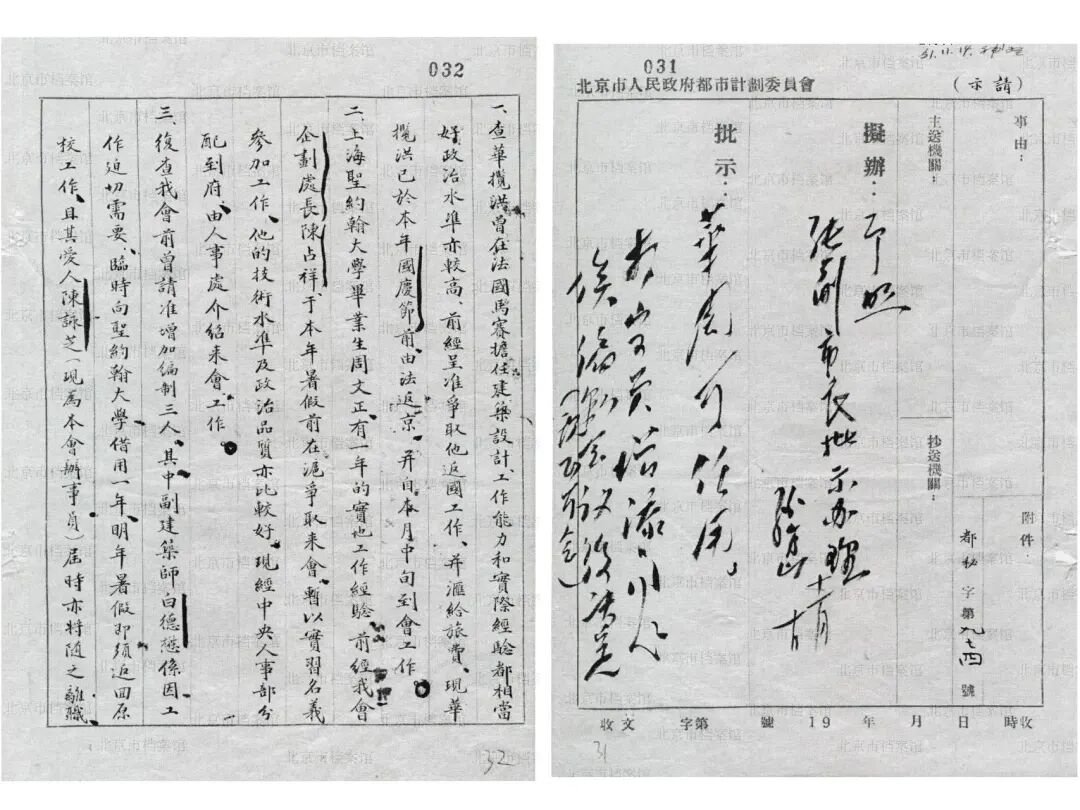 032
一、查華攬洪曾在法國馬賽擔任建築設計、工作能力和實際經驗都相當
好、政治水準亦較高、前經呈准爭取他返國工作、并滙給旅費、現華
攬洪已於本年國慶節前由法返京、并自本月中旬到會工作。
二、上海聖約翰大學畢業生周文正、有一年的實地工作經驗、前經我會
企劃處長陳占祥于本年暑假前在滬爭取來會、暫以實習名義
參加工作、他的技術水準及政治品質亦比較好、現經中央人事部分
配到府、由人事處介紹來會工作。
三、復查我會前曾請准增加編制三人、其中副建築師白德懋係因工
作迫切需要、臨時向聖約翰大學借用一年、明年暑假即須返回原
校工作、且其愛人陳詠芝（現為本會辦事員）屆時亦將隨之離職
32
031
51.11.19.
北京市人民政府都市計劃委員會
（示請）
事由：
主送機關：
抄送機關：
附件：
都秘字第九七四號
擬辦：
可照
張副市長批示办理
十一月
批示：
華周可任用，
增添
俟
後決定
收文 字第 號 19 年 月 日 時收
31
北京市档案馆